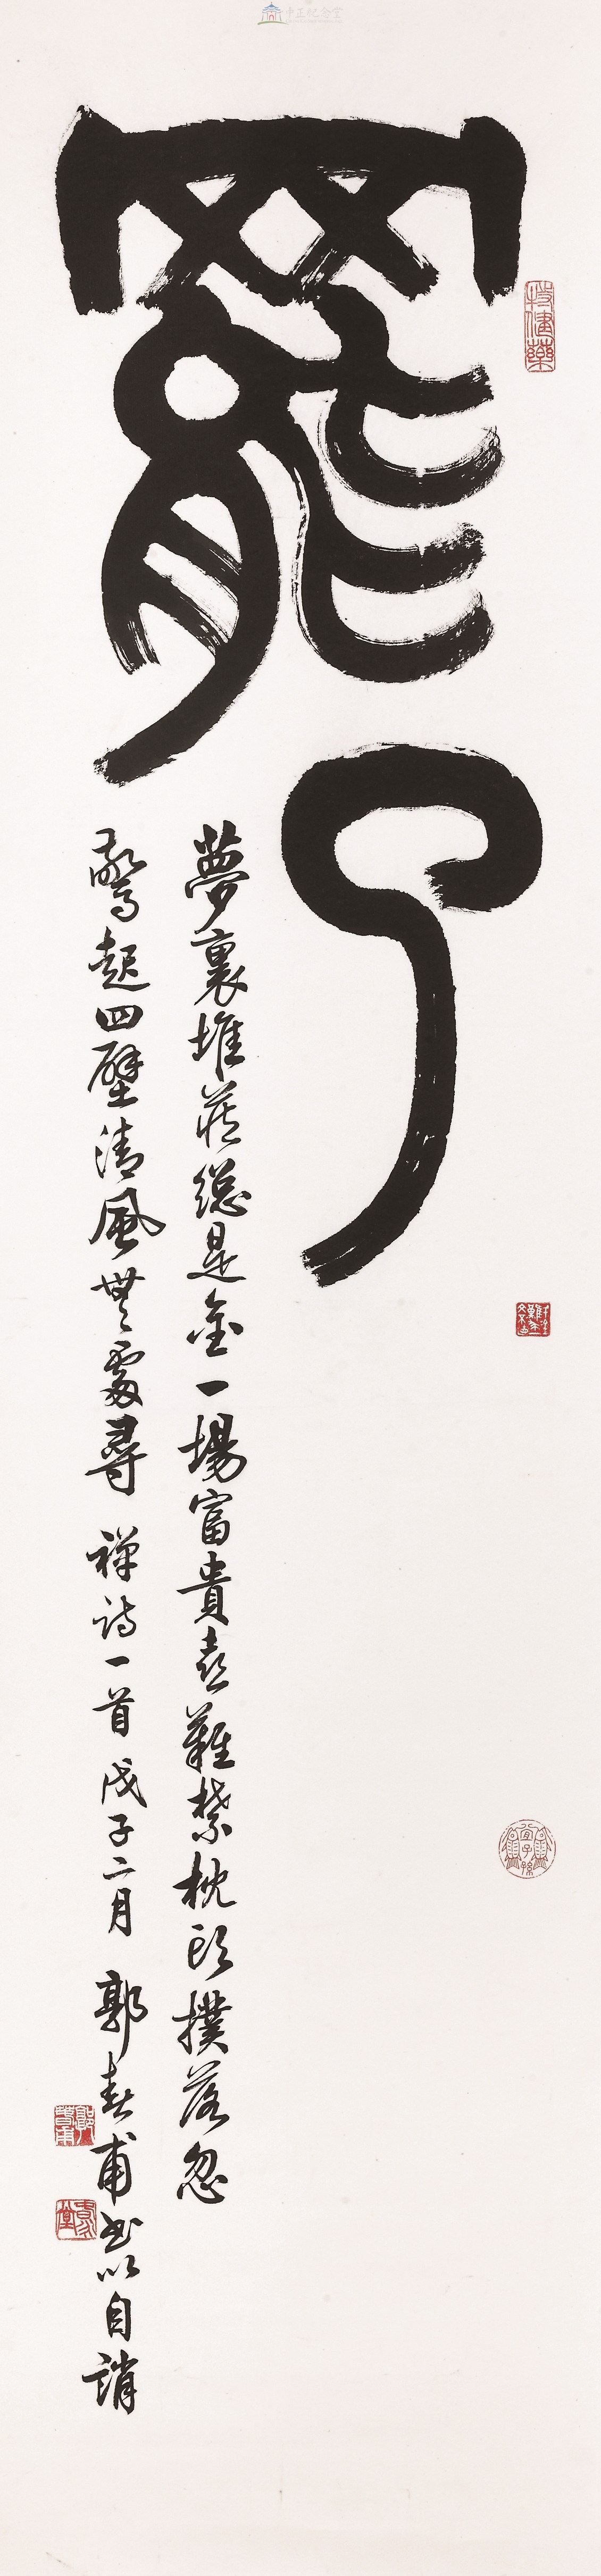 中正紀念堂
罷了
夢裏堆藏總是金一場富貴喜難禁枕頭撲落忽
驚起四壁清風無處尋 禪詩一首 戊子二月 郭春甫書以自誚
宜子孫